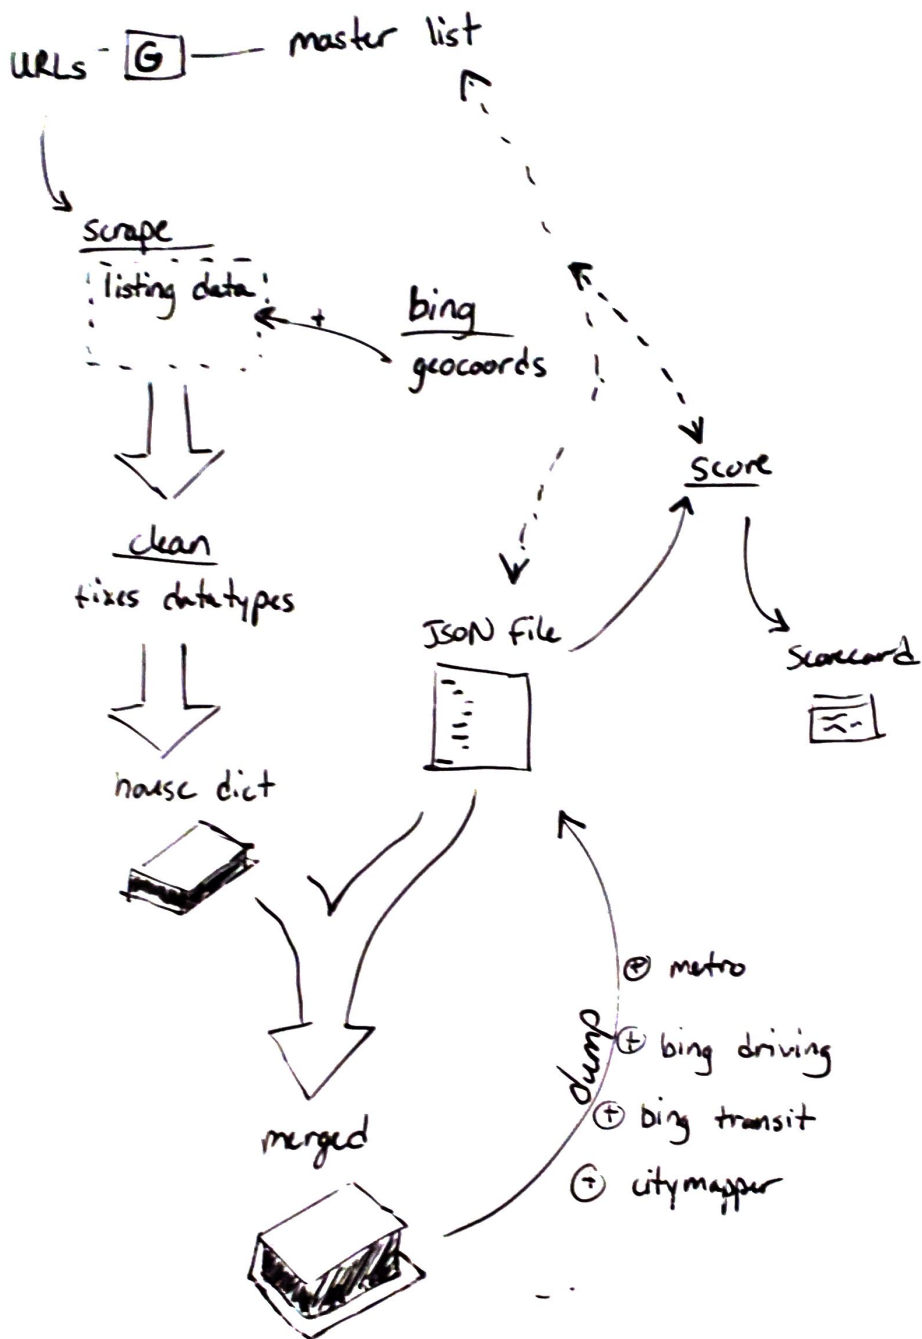 URLs
G
master list
scrape
listing data
+
bing
geocoords
score
clean
fixes datatypes
JSON file
scorecard
house dict
+ metro
dump
+ bing driving
+ bing transit
merged
+ citymapper